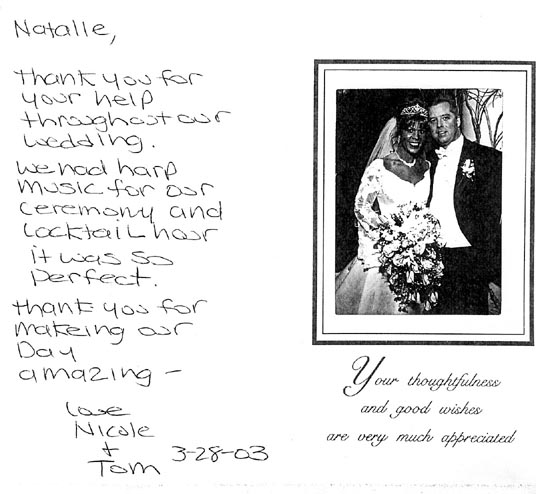 Natalie,
thank you for
your help
throughout our
wedding.
we had harp
music for our
ceremony and
cocktail hour
it was so
perfect.
thank you for
makeing our
Day
amazing –
love
Nicole
+
Tom 3-28-03
Your thoughtfulness
and good wishes
are very much appreciated